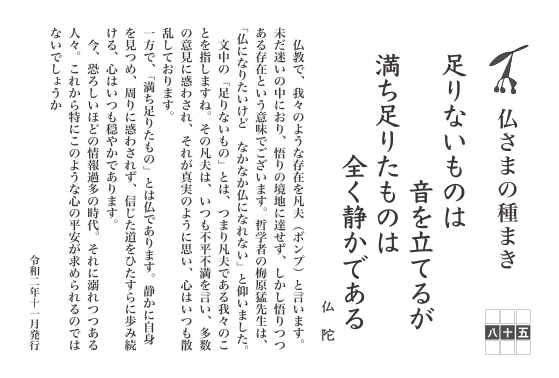 仏さまの種まき
八十五
足りないものは
音を立てるが
満ち足りたものは
全く静かである
仏陀
仏教で、我々のような存在を凡夫（ボンプ）と言います。
未だ迷いの中におり、悟りの境地に達せず、しかし悟りつつ
ある存在という意味でございます。哲学者の梅原猛先生は、
「仏になりたいけど　なかなか仏になれない」と仰いました。
文中の「足りないもの」とは、つまり凡夫である我々のこ
とを指しますね。その凡夫は、いつも不平不満を言い、多数
の意見に惑わされ、それが真実のように思い、心はいつも散
乱しております。
一方で、「満ち足りたもの」とは仏であります。静かに自身
を見つめ、周りに惑わされず、信じた道をひたすらに歩み続
ける、心はいつも穏やかであります。
今、恐ろしいほどの情報過多の時代。それに溺れつつある
人々。これから特にこのような心の平安が求められるのでは
ないでしょうか
令和二年十一月発行